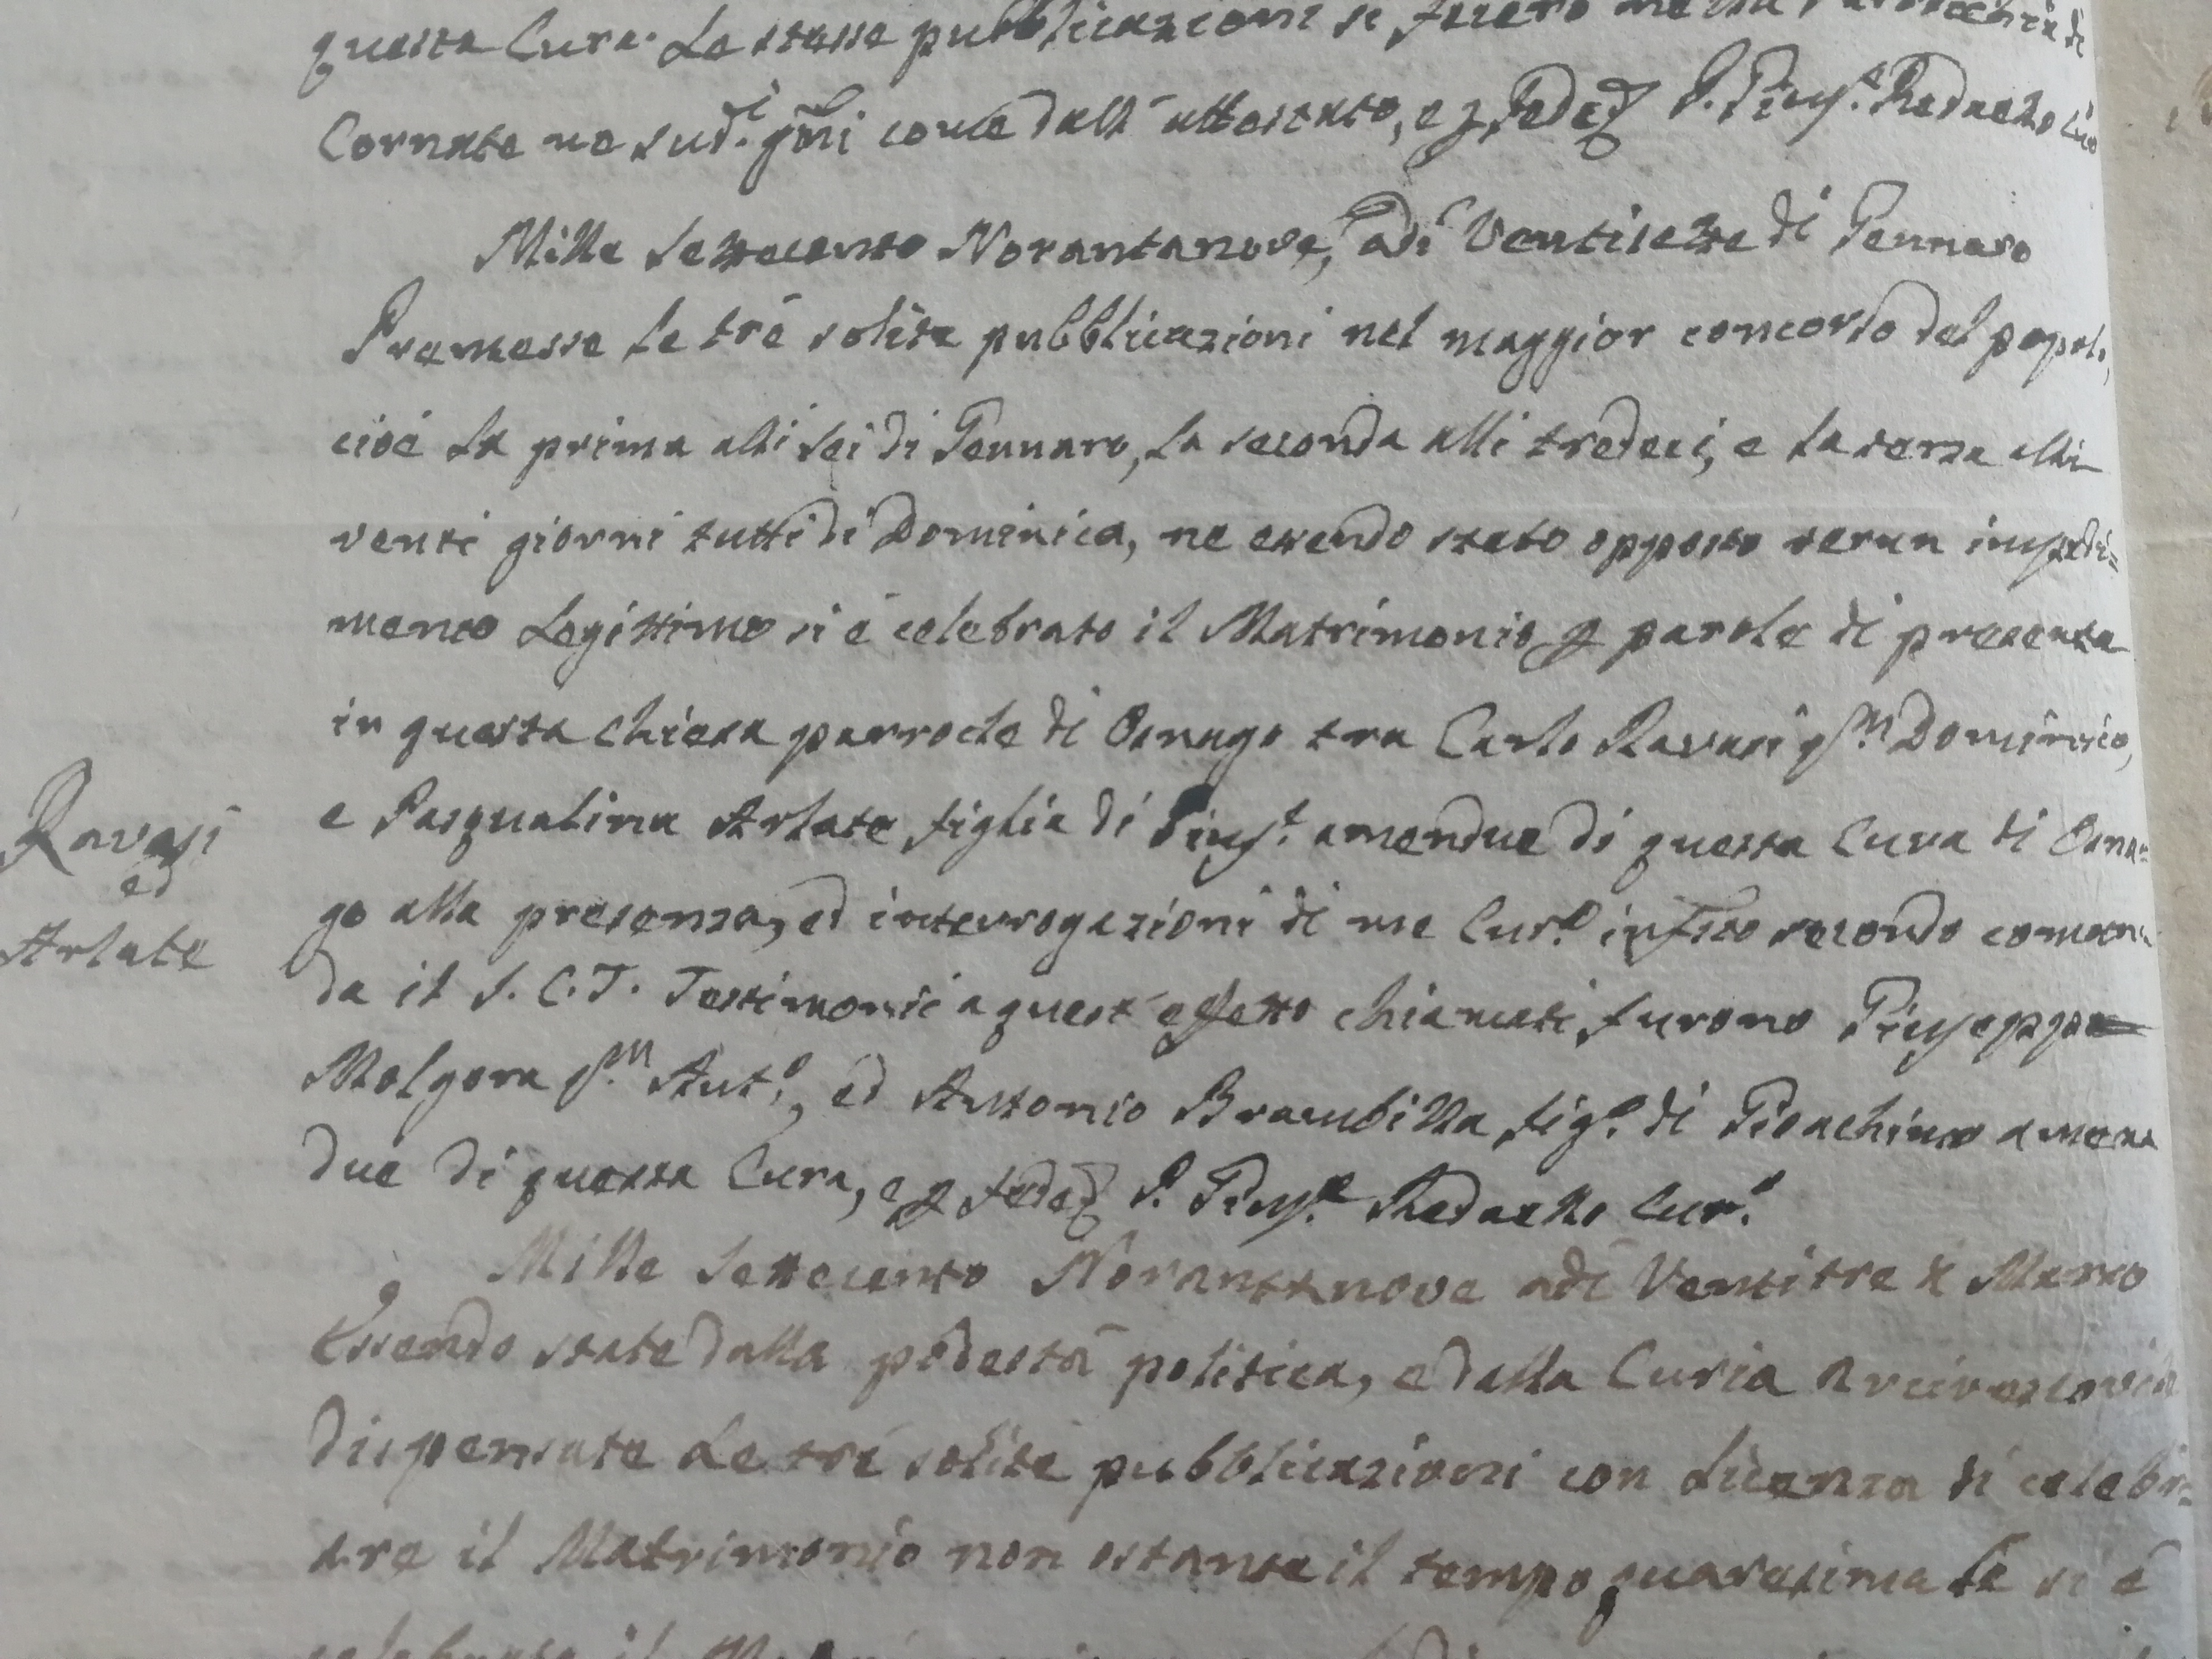 questa Cura. Le stesse pubblicazioni si fecero nella Parrocchia di
Cornate ne sud.i gni come dall'attestato, e p fede P. Gius.e Redaello Cur.o
Mille Settecento Novantanove, adi Ventisette di Gennaro
Premesse le tré solite pubblicazioni nel maggior concorso del popolo,
cioé la prima alli sei di Gennaro, la seconda alli tredeci, e la terza alli
venti giorni tutti di Dominica, ne essendo stato opposto verun impedi=
mento Legittimo si é celebrato il Matrimonio p parole di presente
in questa Chiesa parrocle di Osnago tra Carlo Ravasi qm Dominico,
e Pasqualina Arlate figlia di Gius.e amendue di questa Cura di Osna=
Ravasi
ed
Arlate
go alla presenza, ed interrogazioni di me Cur.o infstto secondo coman
da il S. C. T. Testimonii a quest'effetto chiamati furono Giuseppe
Molgora qm Ant.o, ed Antonio Brambilla fig.o di Gioachimo amen
due di questa Cura, e p fede P. Gius.e Redaello Cur.o
Mille Settecento Novantanove adi Ventitre di Marzo
Essendo state dalla podestá politica, e dalla Curia Arcivescovile
dispensate Le tré solite pubblicazioni con Licenza di celebr=
are il Matrimonio non ostante il tempo quaresimale si é
celebrato il